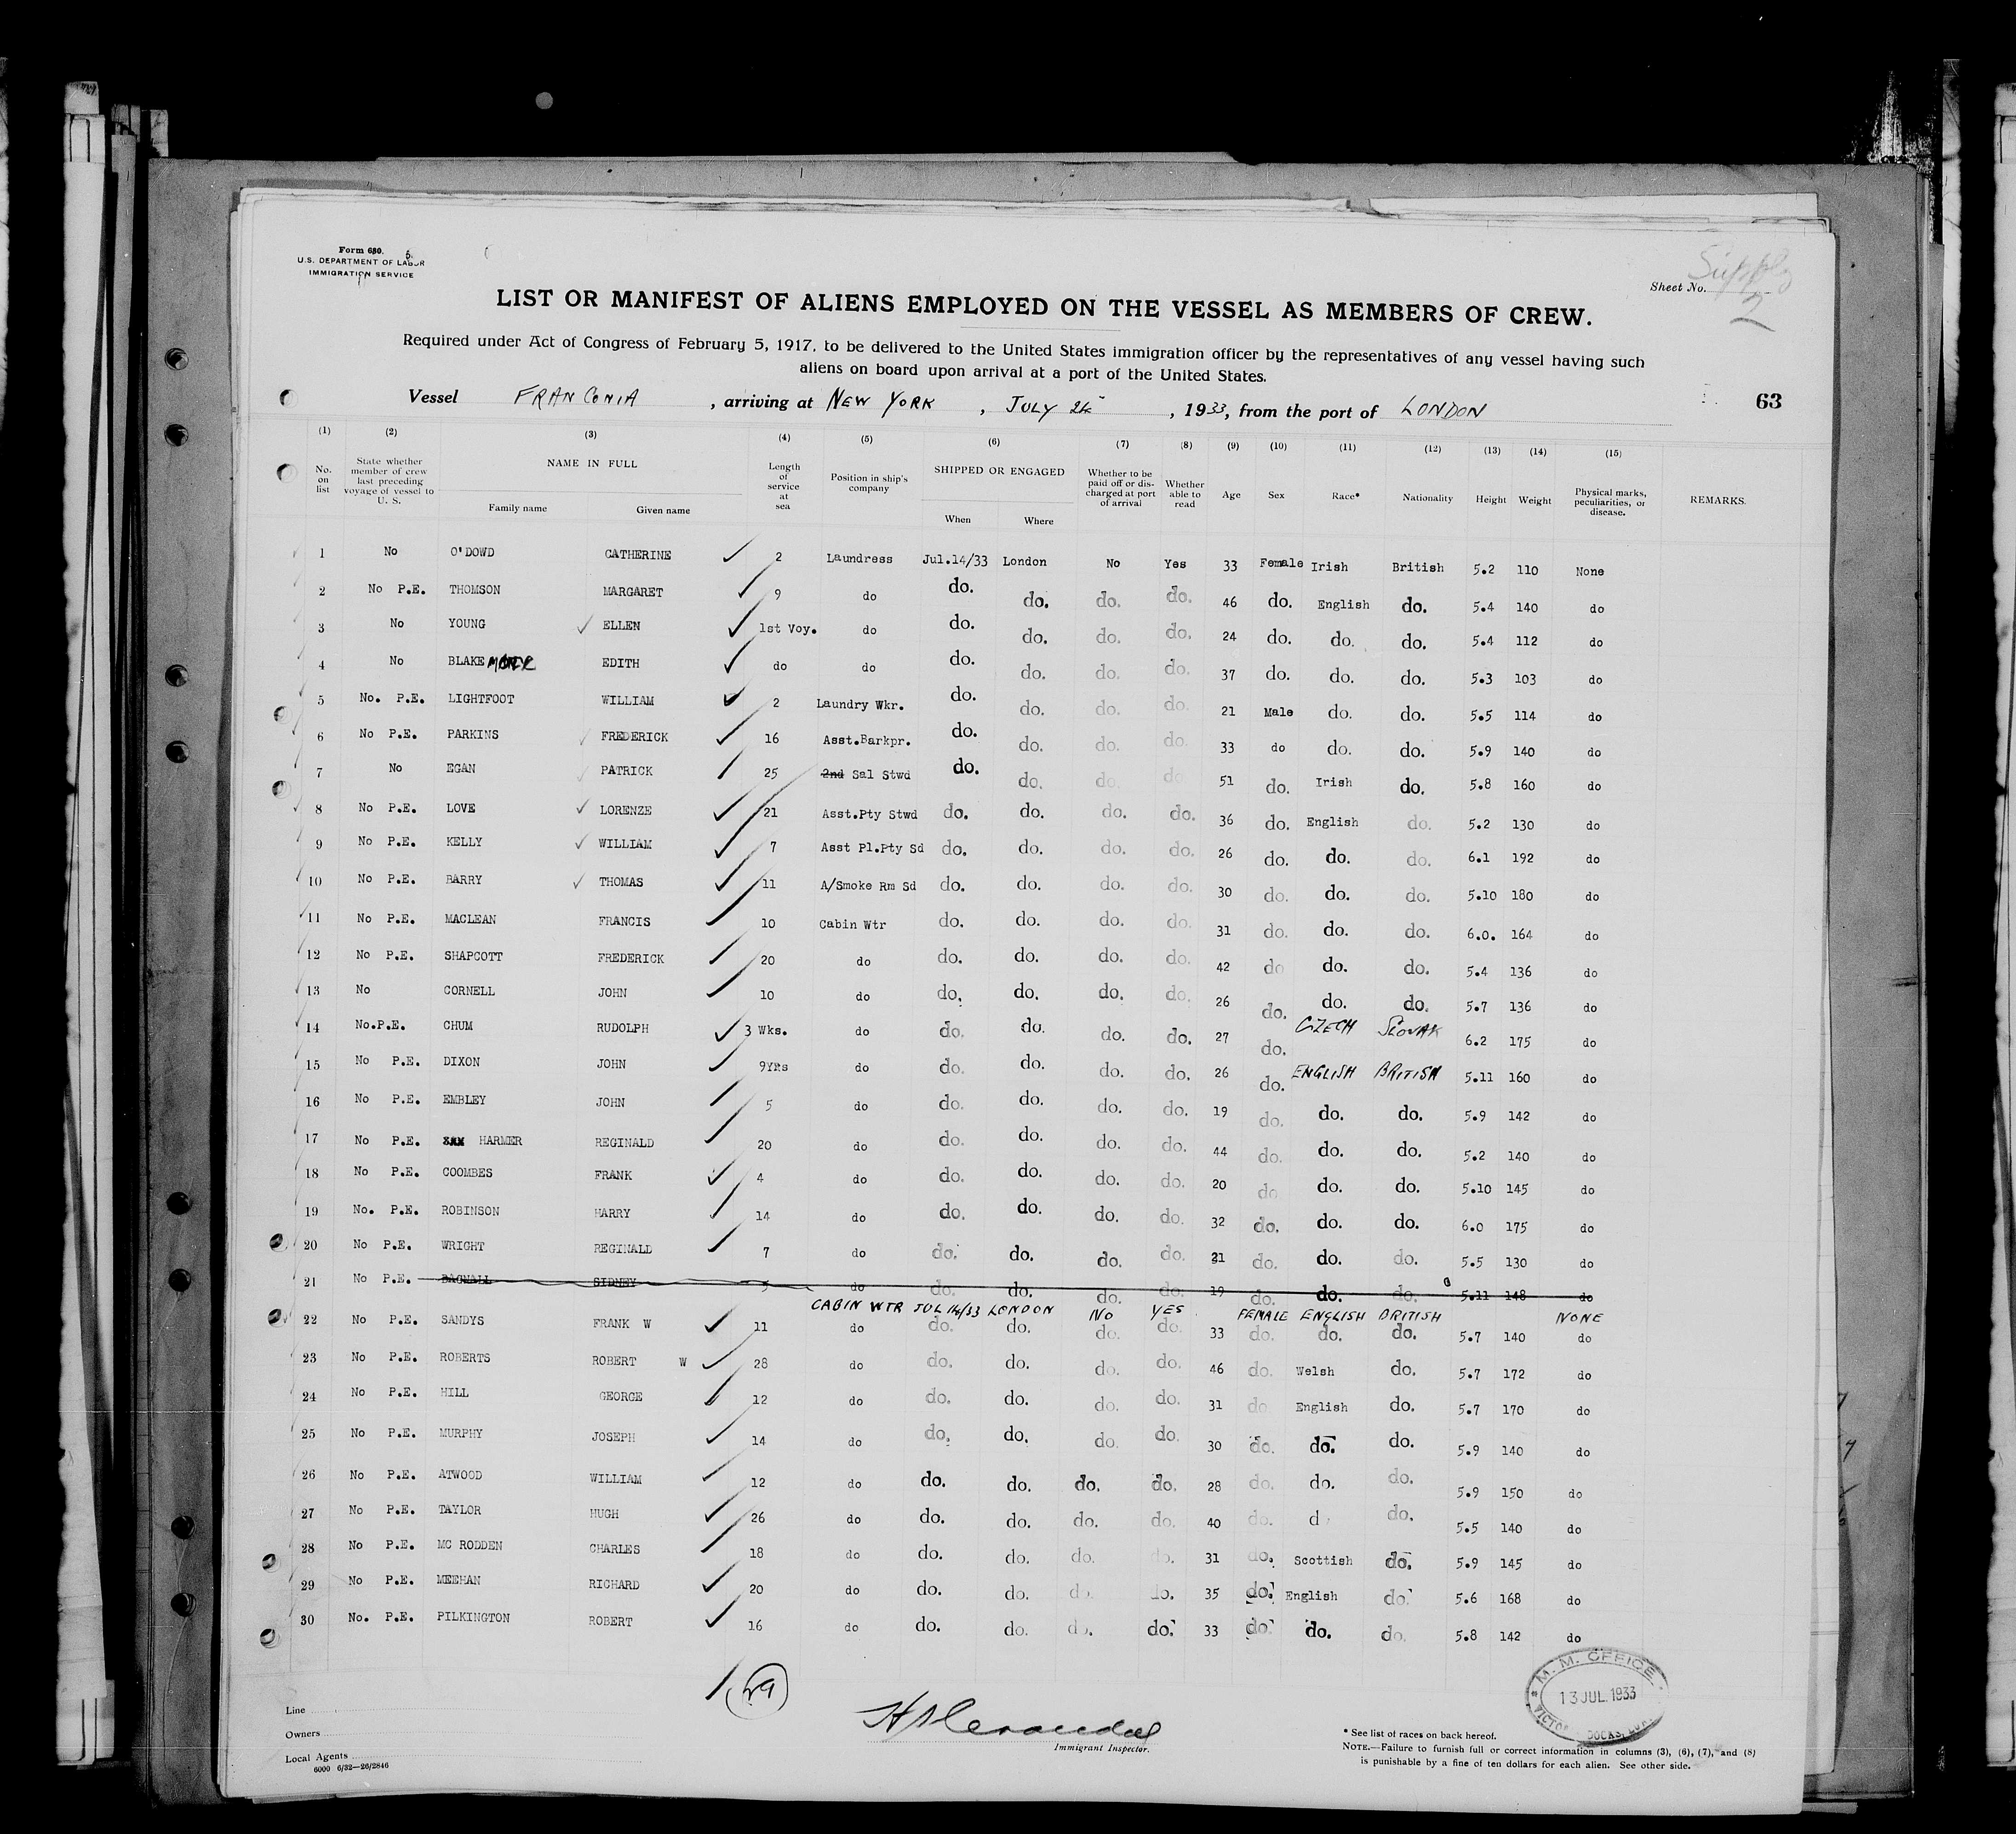 Form 680.
U.S. DEPARTMENT OF LABOR
IMMIGRATION SERVICE
Sheet No. Supply 2
LIST OR MANIFEST OF ALIENS EMPLOYED ON THE VESSEL AS MEMBERS OF CREW.
Required under Act of Congress of February 5, 1917, to be delivered to the United States immigration officer by the representatives of any vessel having such
aliens on board upon arrival at a port of the United States.
Vessel FRANCONIA , arriving at NEW YORK , JULY 24 , 1933, from the port of LONDON
63
(1) (2) (3) (4) (5) (6) (7) (8) (9) (10) (11) (12) (13) (14) (15)
No. on list State whether member of crew last preceding voyage of vessel to U. S. NAME IN FULL Family name Given name Length of service at sea Position in ship's company SHIPPED OR ENGAGED When Where Whether to be paid off or discharged at port of arrival Whether able to read Age Sex Race* Nationality Height Weight Physical marks, peculiarities, or disease. REMARKS.
1 No O'DOWD CATHERINE 2 Laundress Jul.14/33 London No Yes 33 Female Irish British 5.2 110 None
2 No P.E. THOMSON MARGARET 9 do do. do. do. do. 46 do. English do. 5.4 140 do
3 No YOUNG ELLEN 1st Voy. do do. do. do. do. 24 do. do. do. 5.4 112 do
4 No BLAKEMORE EDITH do do do. do. do. do. 37 do. do. do. 5.3 103 do
5 No. P.E. LIGHTFOOT WILLIAM 2 Laundry Wkr. do. do. do. do. 21 Male do. do. 5.5 114 do
6 No P.E. PARKINS FREDERICK 16 Asst.Barkpr. do. do. do. do. 33 do do. do. 5.9 140 do
7 No EGAN PATRICK 25 2nd Sal Stwd do. do. do. do 51 do. Irish do. 5.8 160 do
8 No P.E. LOVE LORENZE 21 Asst.Pty Stwd do. do. do. do. 36 do. English do. 5.2 130 do
9 No P.E. KELLY WILLIAM 7 Asst Pl.Pty Sd do. do. do. do. 26 do. do. do. 6.1 192 do
10 No P.E. BARRY THOMAS 11 A/Smoke Rm Sd do. do. do. do. 30 do. do. do. 5.10 180 do
11 No P.E. MACLEAN FRANCIS 10 Cabin Wtr do. do. do. do. 31 do. do. do. 6.0. 164 do
12 No P.E. SHAPCOTT FREDERICK 20 do do. do. do. do. 42 do do. do. 5.4 136 do
13 No CORNELL JOHN 10 do do. do. do. do. 26 do. do. do. 5.7 136 do
14 No.P.E. CHUM RUDOLPH 3 Wks. do do. do. do. do. 27 do. CZECH SLOVAK 6.2 175 do
15 No P.E. DIXON JOHN 9Yrs do do. do. do. do. 26 do. ENGLISH BRITISH 5.11 160 do
16 No P.E. EMBLEY JOHN 5 do do. do. do. do. 19 do. do. do. 5.9 142 do
17 No P.E. HARMER REGINALD 20 do do. do. do. do. 44 do. do. do. 5.2 140 do
18 No P.E. COOMBES FRANK 4 do do. do. do. do. 20 do do. do. 5.10 145 do
19 No. P.E. ROBINSON HARRY 14 do do. do. do. do. 32 do. do. do. 6.0 175 do
20 No P.E. WRIGHT REGINALD 7 do do. do. do. do. 21 do. do. do. 5.5 130 do
21 No P.E. BAGNALL SIDNEY 3 do do. do. do. do. 19 do. do. do. 5.11 148 do
CABIN WTR JUL 14/33 LONDON NO YES FEMALE ENGLISH BRITISH NONE
22 No P.E. SANDYS FRANK W 11 do do. do. do. do. 33 do. do. do. 5.7 140 do
23 No P.E. ROBERTS ROBERT W 28 do do. do. do. do. 46 do. Welsh do. 5.7 172 do
24 No P.E. HILL GEORGE 12 do do. do. do. do. 31 do English do. 5.7 170 do
25 No P.E. MURPHY JOSEPH 14 do do. do. do. do. 30 do. do. do. 5.9 140 do
26 No P.E. ATWOOD WILLIAM 12 do do. do. do. do. 28 do. do. do. 5.9 150 do
27 No P.E. TAYLOR HUGH 26 do do. do. do. do. 40 do. d do. 5.5 140 do
28 No P.E. MC RODDEN CHARLES 18 do do. do. do. do. 31 do. Scottish do. 5.9 145 do
29 No P.E. MEEHAN RICHARD 20 do do. do. do. do. 35 do. English do. 5.6 168 do
30 No. P.E. PILKINGTON ROBERT 16 do do. do. do. do. 33 do. do. do. 5.8 142 do
29
M. M. OFFICE
13 JUL. 1933
DOCKS
Line
Owners
Local Agents
6000 6/32—26/2846
Immigrant Inspector.
* See list of races on back hereof.
NOTE.—Failure to furnish full or correct information in columns (3), (6), (7), and (8)
is punishable by a fine of ten dollars for each alien. See other side.